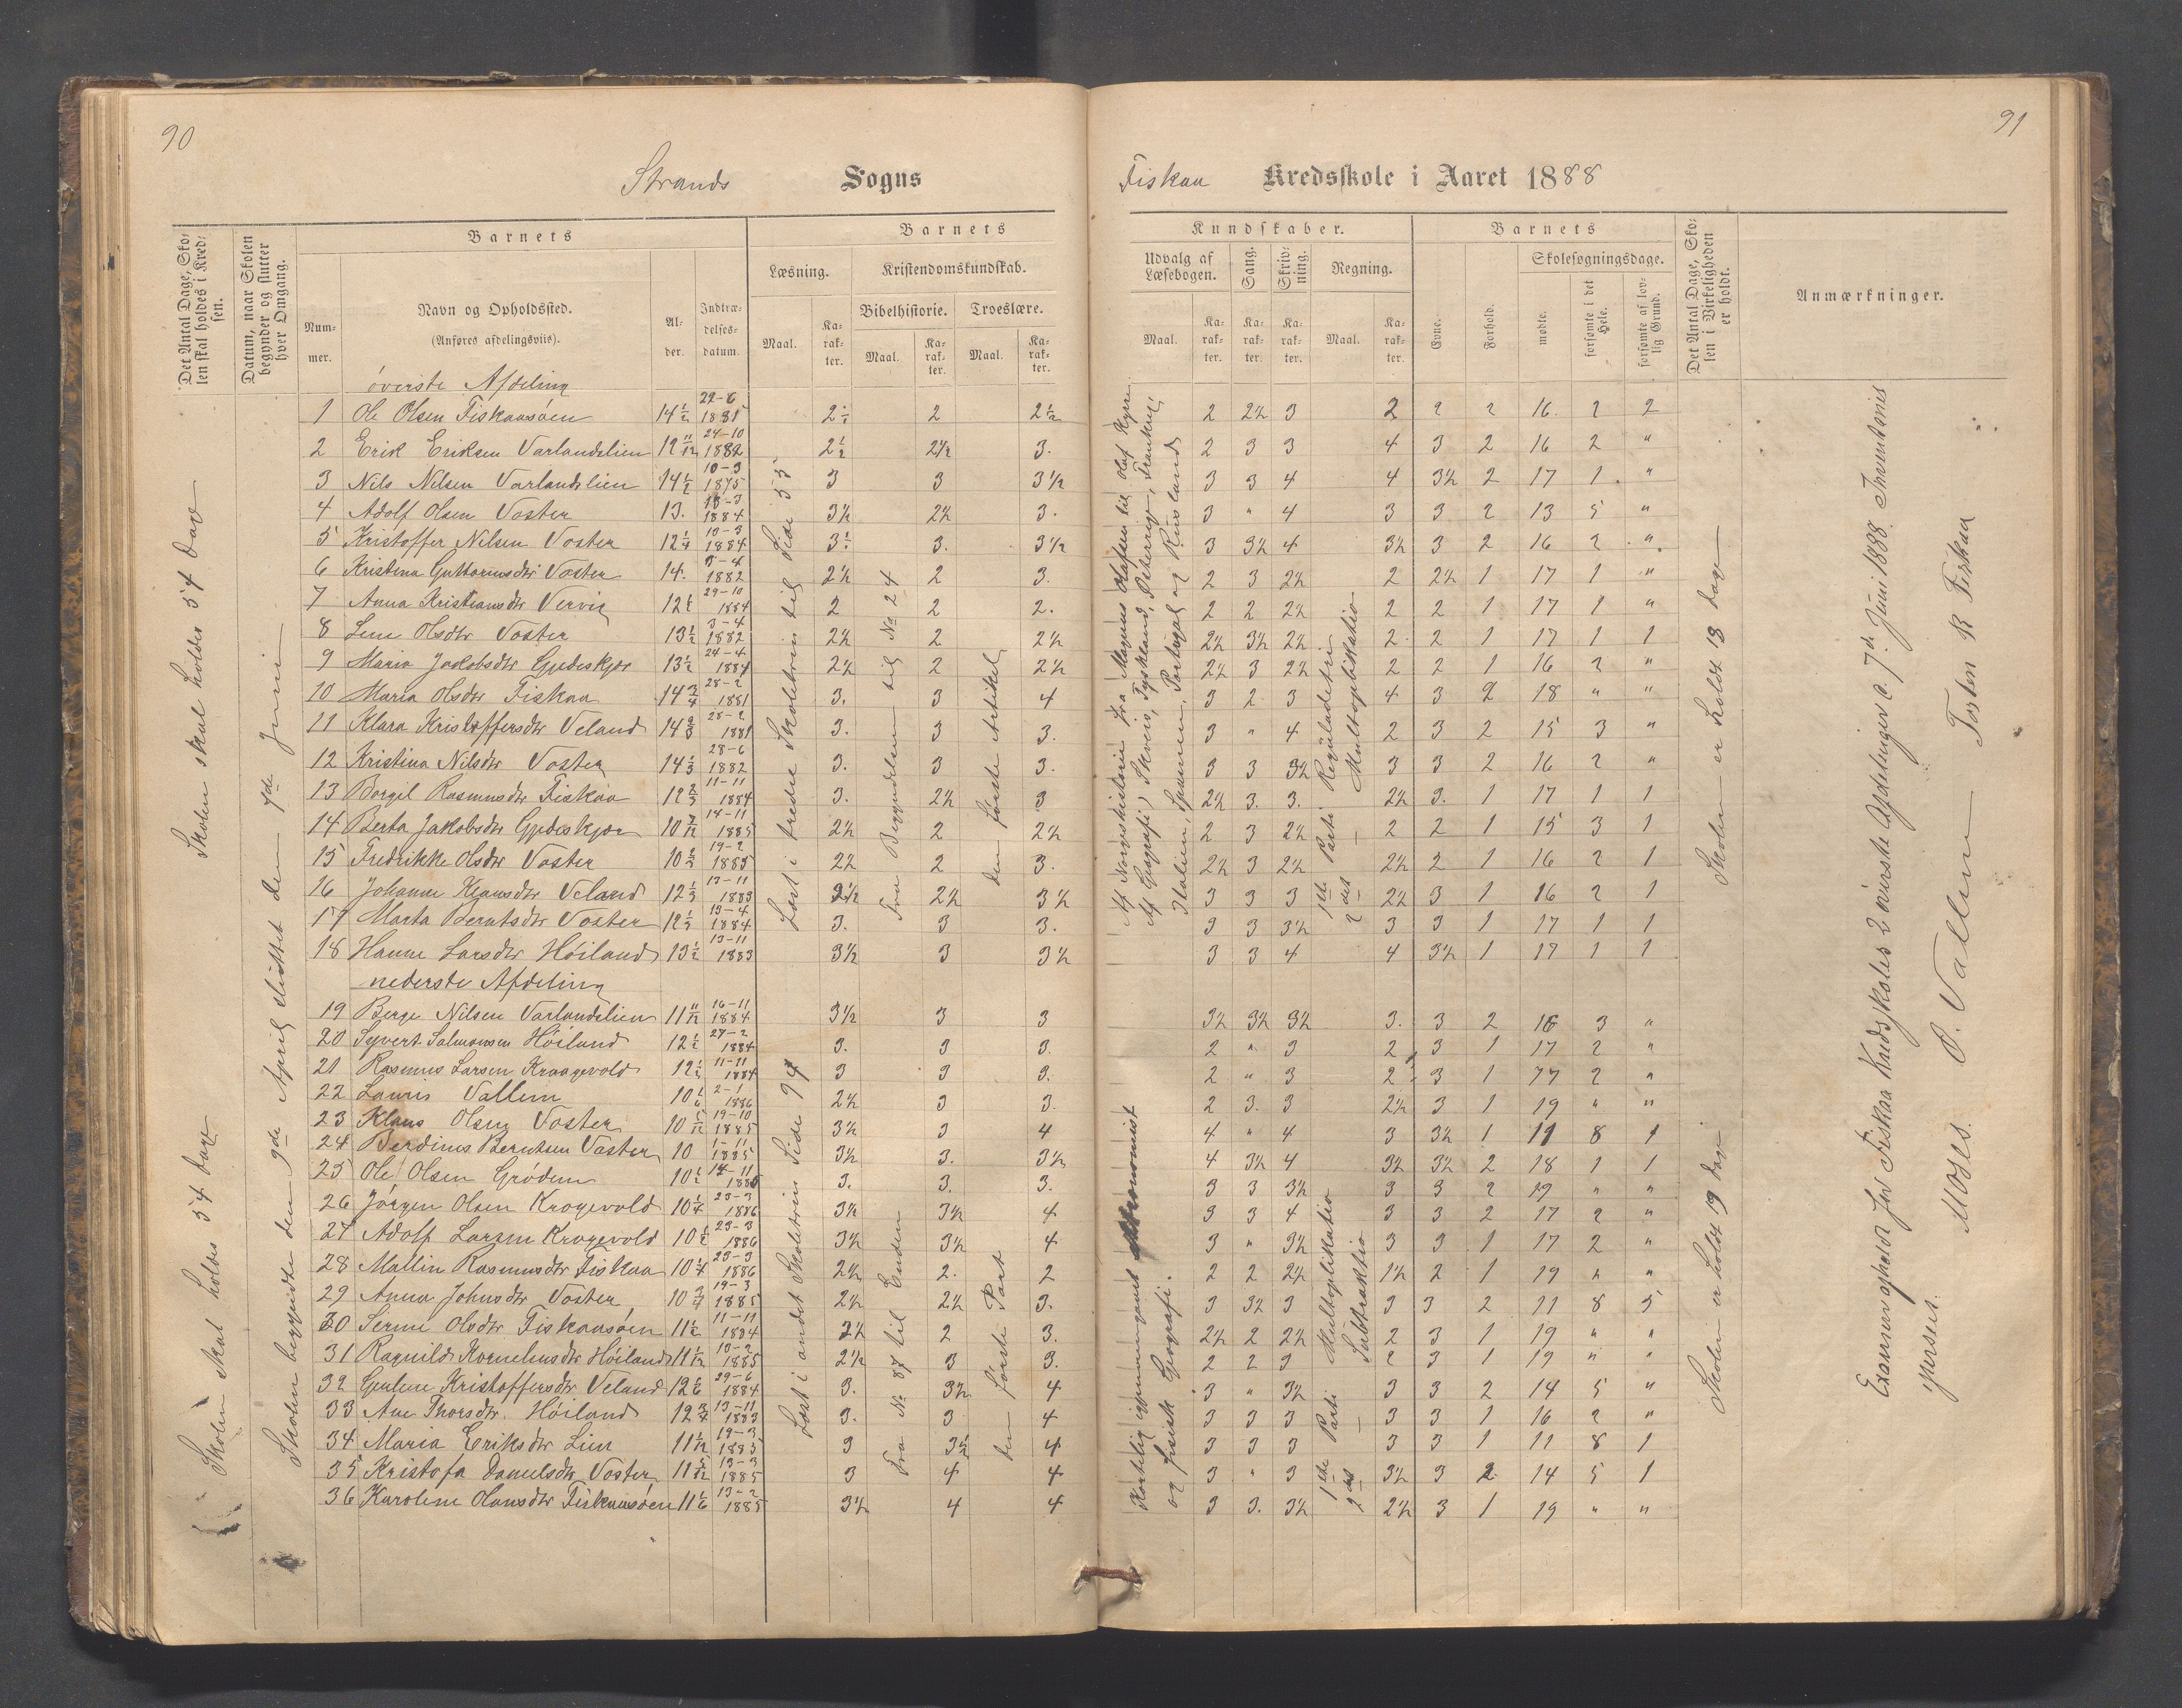 90
Strands Sogns
Det Antal Dage, Sko-
len skal holdes i Kred-
sen.
Datum, naar Skolen
begynder og slutter
hver Omgang.
Barnets
Num-
mer.
Navn og Opholdssted.
(Anføres afdelingsviis).
Al-
der.
Indtræ-
delses-
datum.
Barnets
Læsning.
Kristendomskundskab.
Bibelhistorie. Troeslære.
Maal. Ka-
rak-
ter. Maal. Ka-
rak-
ter. Maal. Ka-
rak-
ter.
Skolen skal holdes 54 Dage
Skolen skal holdes 54 Dage
Skolen begyndte den 9de April sluttet den 7de Juni
øverste Afdeling
1 Ole Olsen Fiskaasøen 14½ 2½ 2 2½
2 Erik Eriksen Varlandslien 24-10 1882 2½ 2½ 3.
3 Nils Nilsen Varlandslien 14½ 10-3 1875 3 3 3½
4 Adolf Olsen Voster 13. 13-3 1884 3½ 2½ 3.
5 Kristoffer Nilsen Voster 10-3 1884 3½ 3. 3½
6 Kristina Guttormsdtr Voster 14. 1882 2½ 2 3.
7 Anna Kristiansdtr Vervig 12½ 29-10 1884 2 2 2.
8 Lene Olsdtr Voster 13½ 3-4 1882 2½ 2 2½
9 Maria Jacobsdtr Gjedeskjær 13½ 24-4 1884 2½ 2 2½
10 Maria Olsdtr Fiskaa 14¾ 28-2 1881 3. 3 4
11 Klara Kristoffersdtr Veland 28-2 1881 3. 3 3.
12 Kristina Nilsdtr Voster 28-6 1882 3. 3 3.
13 Borgil Rasmusdtr Fiskaa 11-11 1884 3. 2½ 3
14 Berta Jakobsdtr Gjedeskjær 14-11 1885 2½ 2 2½
15 Fredrikke Olsdtr Voster 19-2 1885 2½ 2 3.
16 Johanne Klausdtr Veland 13-11 1883 2½ 2½ 3½
17 Marta Berntsdtr Voster 13-4 1884 3. 3 3.
18 Hanne Larsdtr Höiland 13½ 13-11 1883 3½ 3 3½
nederste Afdeling
19 Berge Nilsen Varlandslien 16-11 1884 3½ 3 3
20 Syvert Salmonsen Höiland 12½ 27-2 1884 3. 3 3.
21 Rasmus Larsen Kraagevold 12½ 11-11 1884 3 3 3.
22 Lauris Vallem 2-1 1886 2½ 3 3.
23 Klaus Olsen Voster 19-10 1885 3½ 3 4
24 Berdines Berntsen Voster 10 1-11 1885 3½ 3. 3½
25 Ole Olsen Grödem 10½ 3. 3. 3.
26 Jörgen Olsen Krogevold 10¼ 23-3 1886 3½ 3½ 4
27 Adolf Larsen Krogevold 10½ 23-3 1886 3½ 3½ 4
28 Mallin Rasmusdtr Fiskaa 10¼ 23-3 1886 2½ 2. 2
29 Anna Johnsdtr Voster 19-3 1885 2½ 2½ 3.
30 Serine Olsdtr Fiskaasøen 11½ 11-11 1884 2½ 2 3.
31 Ragnild Kornelius­dtr Höiland 13-2 1885 2½ 3 3.
32 Gjuline Kristoffersdtr Veland 29-6 1884 3. 3½ 4
33 Ane Thorsdtr. Höiland 12¾ 13-11 1883 3. 3 4
34 Maria Eriksdtr Lien 19-3 1885 3 3½ 4
35 Kristofa Danielsdtr Voster 13-3 1885 3 4 4
36 Karoline Olausdtr Fiskaasøen 13-2 1885 3½ 4 4
Læst i tredie Skoletrin til Side 55
Fra Begyndelsen til No 24
den første Artikel
Læst i andet Skoletrin Side 94
Fra No 87 til Enden
den første Part
91
Fiskaa Kredsskole i Aaret 1888
Kundskaber.
Udvalg af
Læsebogen.
Sang.
Skriv-
ning.
Regning.
Maal. Ka-
rak-
ter. Ka-
rak-
ter. Ka-
rak-
ter. Maal. Ka-
rak-
ter.
Barnets
Evne.
Forhold.
Skolesøgningsdage.
mødte.
forsømte i det
Hele.
forsømte af lov-
lig Grund.
Det Antal Dage, Sko-
len i Virkeligheden
er holdt.
Anmærkninger.
Af Norgeshistorie fra Magnus Olafsen til Olaf Kyrre.
Af Geografi, Skveis, Tyskland, Österrige, Frankrig,
Italien, Spanien, Portugal og Rusland
1ste Parti. Reguladetri
2det — Multoplikatio
2 2½ 3 2 2 2 16. 2 2
2 3 3 4 3 2 16 2 "
3 3 4 4 3½ 2 17 1. "
3 " 4 3 3 2 13 5 "
3 3½ 4 3½ 3 2 16 2 "
2 3 2½ 2 2½ 1 17 1 "
2 2 2½ 2 2 1 17 1 "
2½ 3½ 2½ 2 2 1 17 1 1
2½ 3 2½ 2 2 1 16 2 "
3 2 3 4 3 2 18 " "
3 " 4 2 3 2 15 3 "
3 3 3½ 3 3 2 16 2 "
2½ 3. 3. 2½ 3. 1 17 1 1
2 3 2½ 2 2 1 15 3 1
2½ 3 2½ 2½ 2 1 16 2 1
3 3 3 2½ 3 1 16 2 1
3 3 3½ 3 3 1 17 1 1
3 3 4 4 3½ 1 17 1 1
3½ 3½ 3½ 3. 3 2 16 3 "
2 " 3 2 3 1 17 2 "
2 " 3 2 3 1 17 2 "
2 3. 3 2½ 3 1 19 " "
4 " 4 3 3½ 1 11 8 1
4 3½ 4 3½ 3½ 2 18 1 1
3 3 3½ 3 3 2 19 " "
3 3 4 3 3 2 17 2 "
3 " 3½ 3 3 1 17 2 "
2 2 2½ 1½ 2 1 19 " "
3 3½ 3 3 3 2 11 8 5
2½ 2 2½ 2 3 1 19 " "
2 2 3 2 3 1 19 " "
3 " 3½ 3 3 2 14 5 "
3 3 3 3 3 1 16 2 "
3 3 3 3 3 1 11 8 1
3 " 3 3½ 3 2 14 5 1
3 3. 3½ 2½ 3 1 19 " "
Kortelig gjennemgaaet
og fisisk Geografi.
1ste Parti Multoplikatio
2det — Subtraktio
Skolen er holdt 18 Dage
Skolen er holdt 19 Dage
Examen afholdt for Fiskaa Kredsskoles 2 øverste Afdelinger d. 7de Juni 1888.
Moses. O. Vallem Torsten R Fiskaa